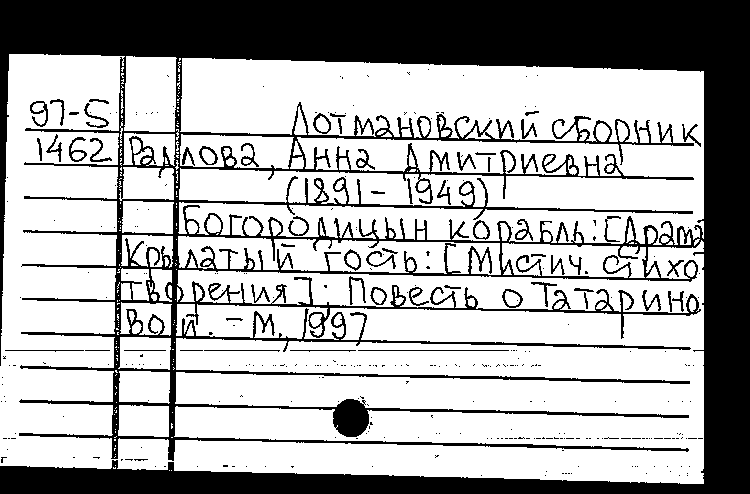 97-5 Лотмановский сборник
1462 Радлова, Анна Дмитриевна
(1891 - 1949)
Богородицын корабль: [Драма
Крылатый гость: [Мистич. стихо-
творения]; Повесть о Татарино-
вой. - М., 1997